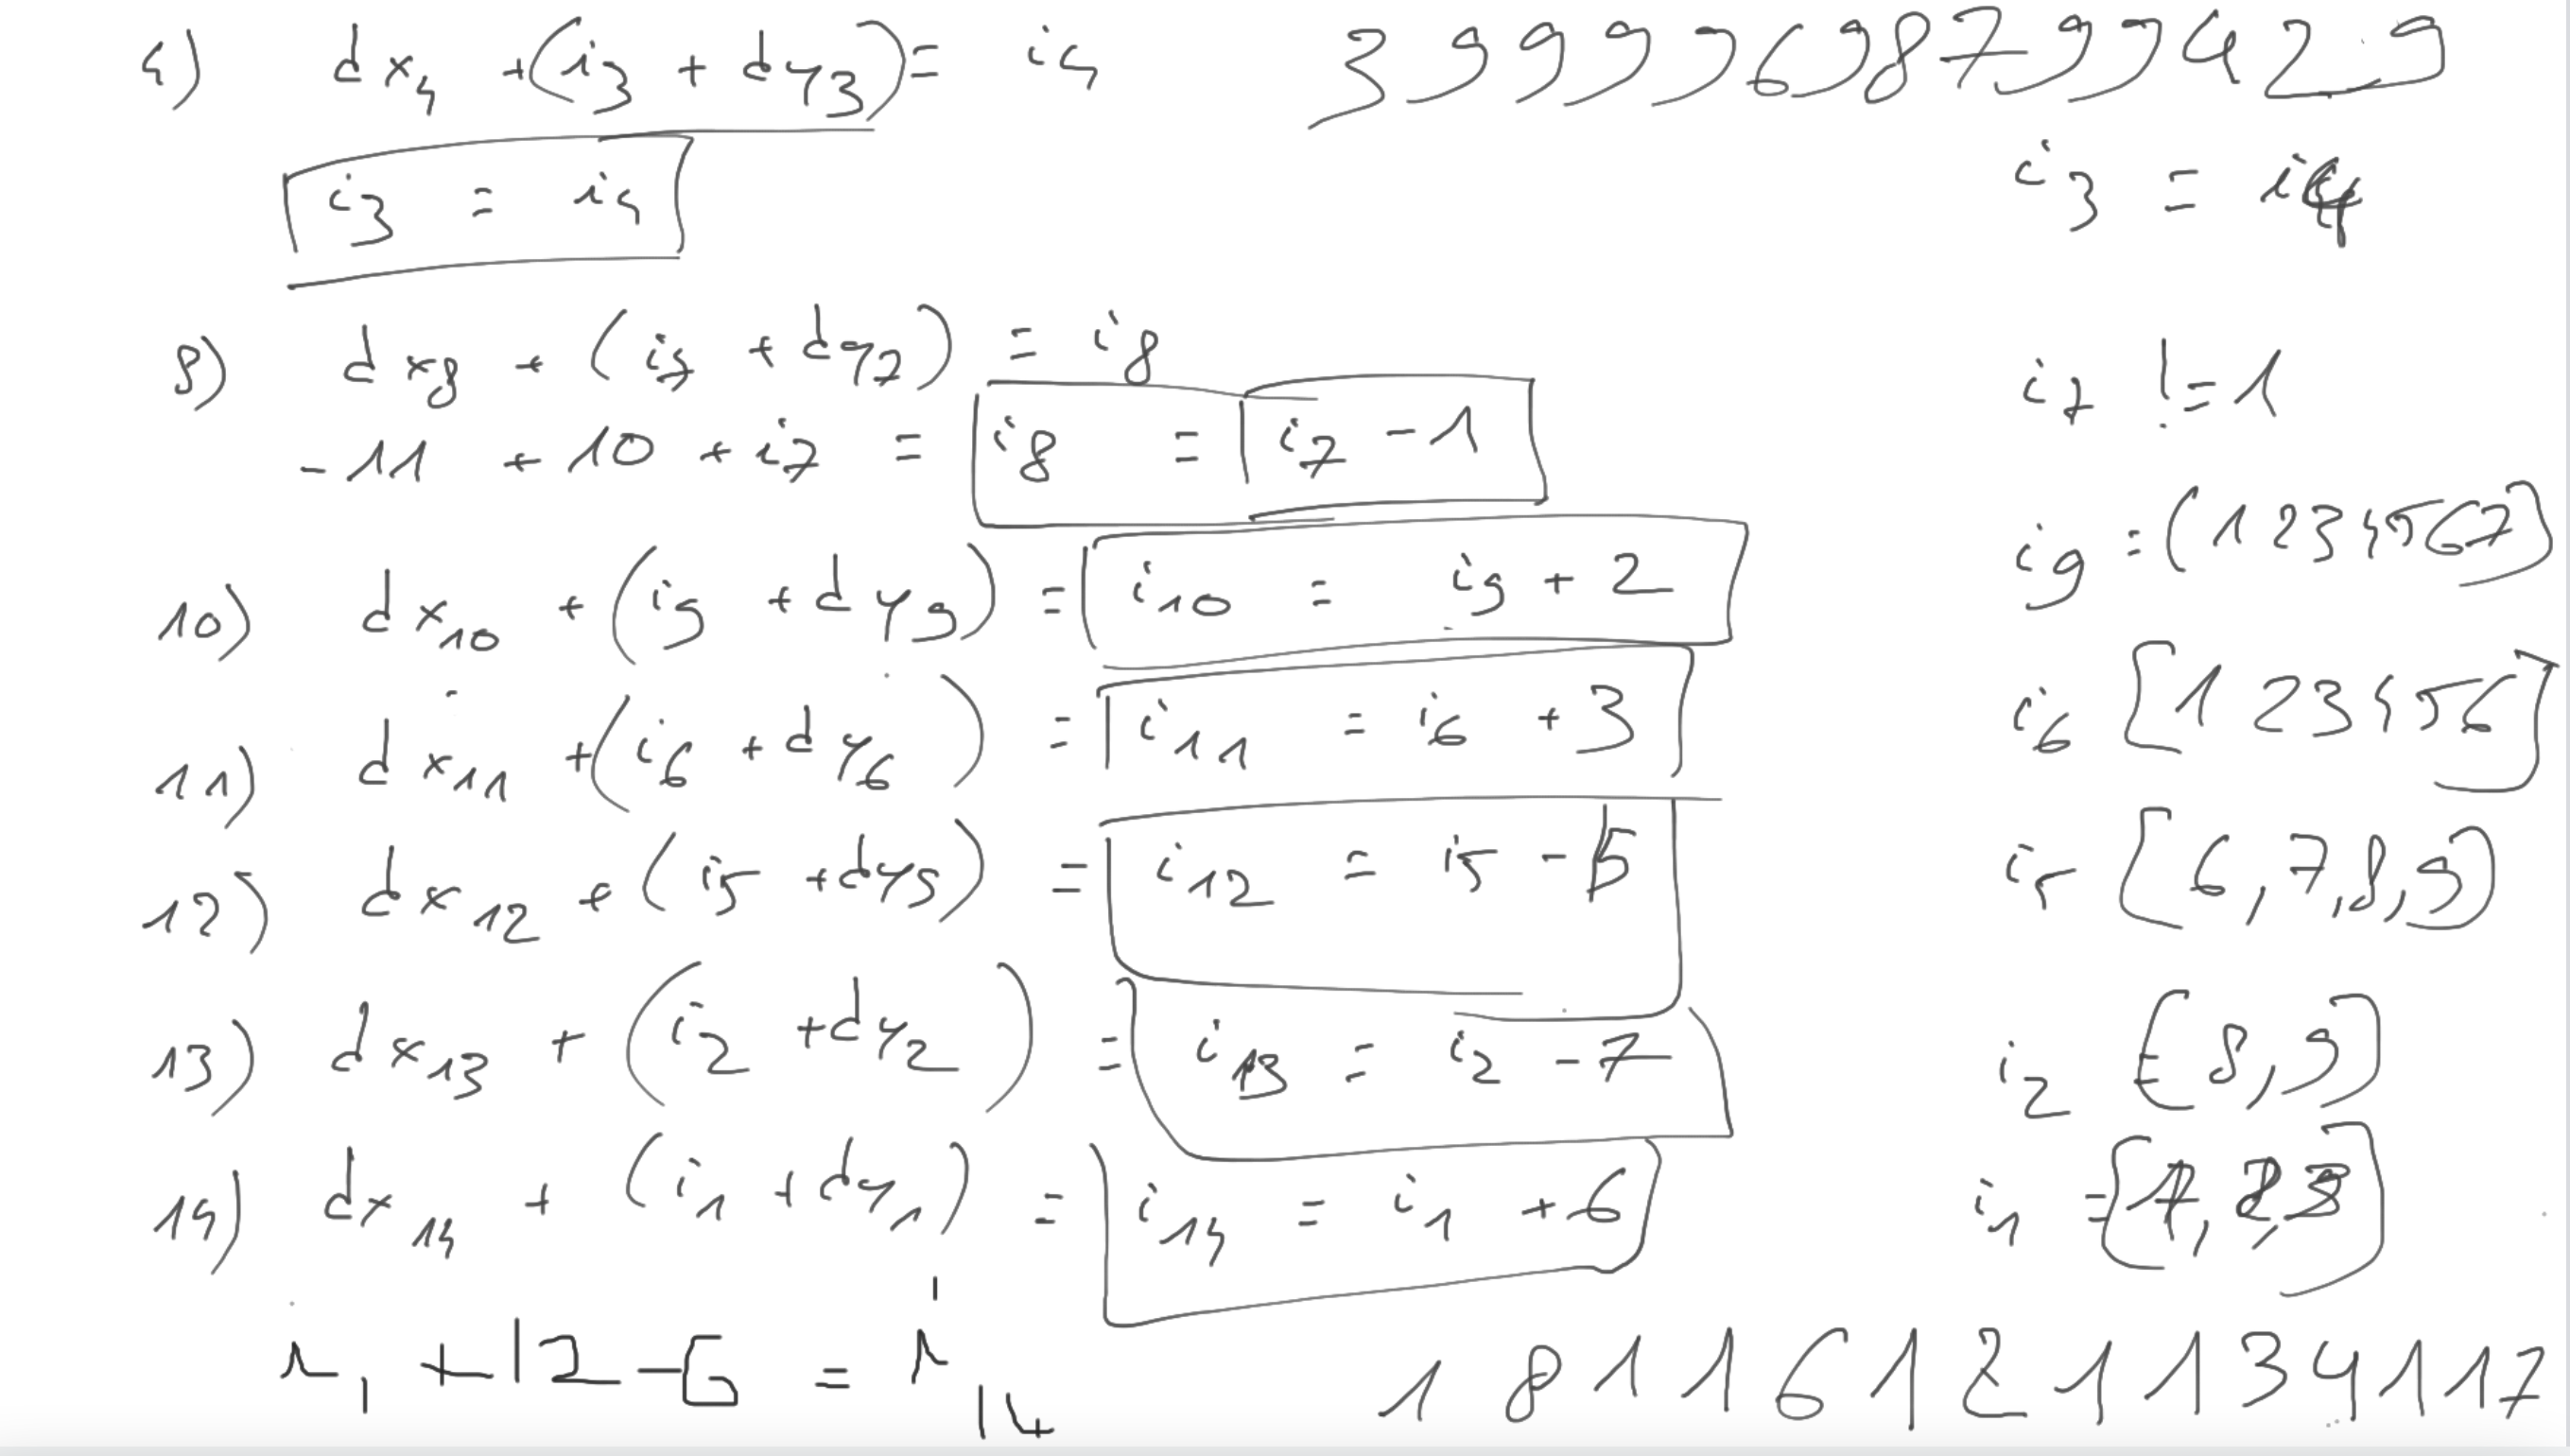 4) dx4 +(i3 + dy3)= i4 39999698799429
i3 = i4 i3 = i4
8) dx8 + (i7 + dy7) = i8 i7 != 1
-11 + 10 + i7 = i8 = i7 -1
i9 = (1234567)
10) dx10 + (i9 + dy9) = i10 = i9 + 2
11) dx11 +(i6 + dy6) = i11 = i6 + 3 i6 [123456]
12) dx12 + (i5 + dy5) = i12 = i5 - 5 i5 [6,7,8,9)
13) dx13 + (i2 + dy2) = i13 = i2 - 7 i2 [8,9]
14) dx14 + (i1 + dy1) = i14 = i1 + 6 i1 =[1,2,3]
i1 +12-6 = i14 18116121134117